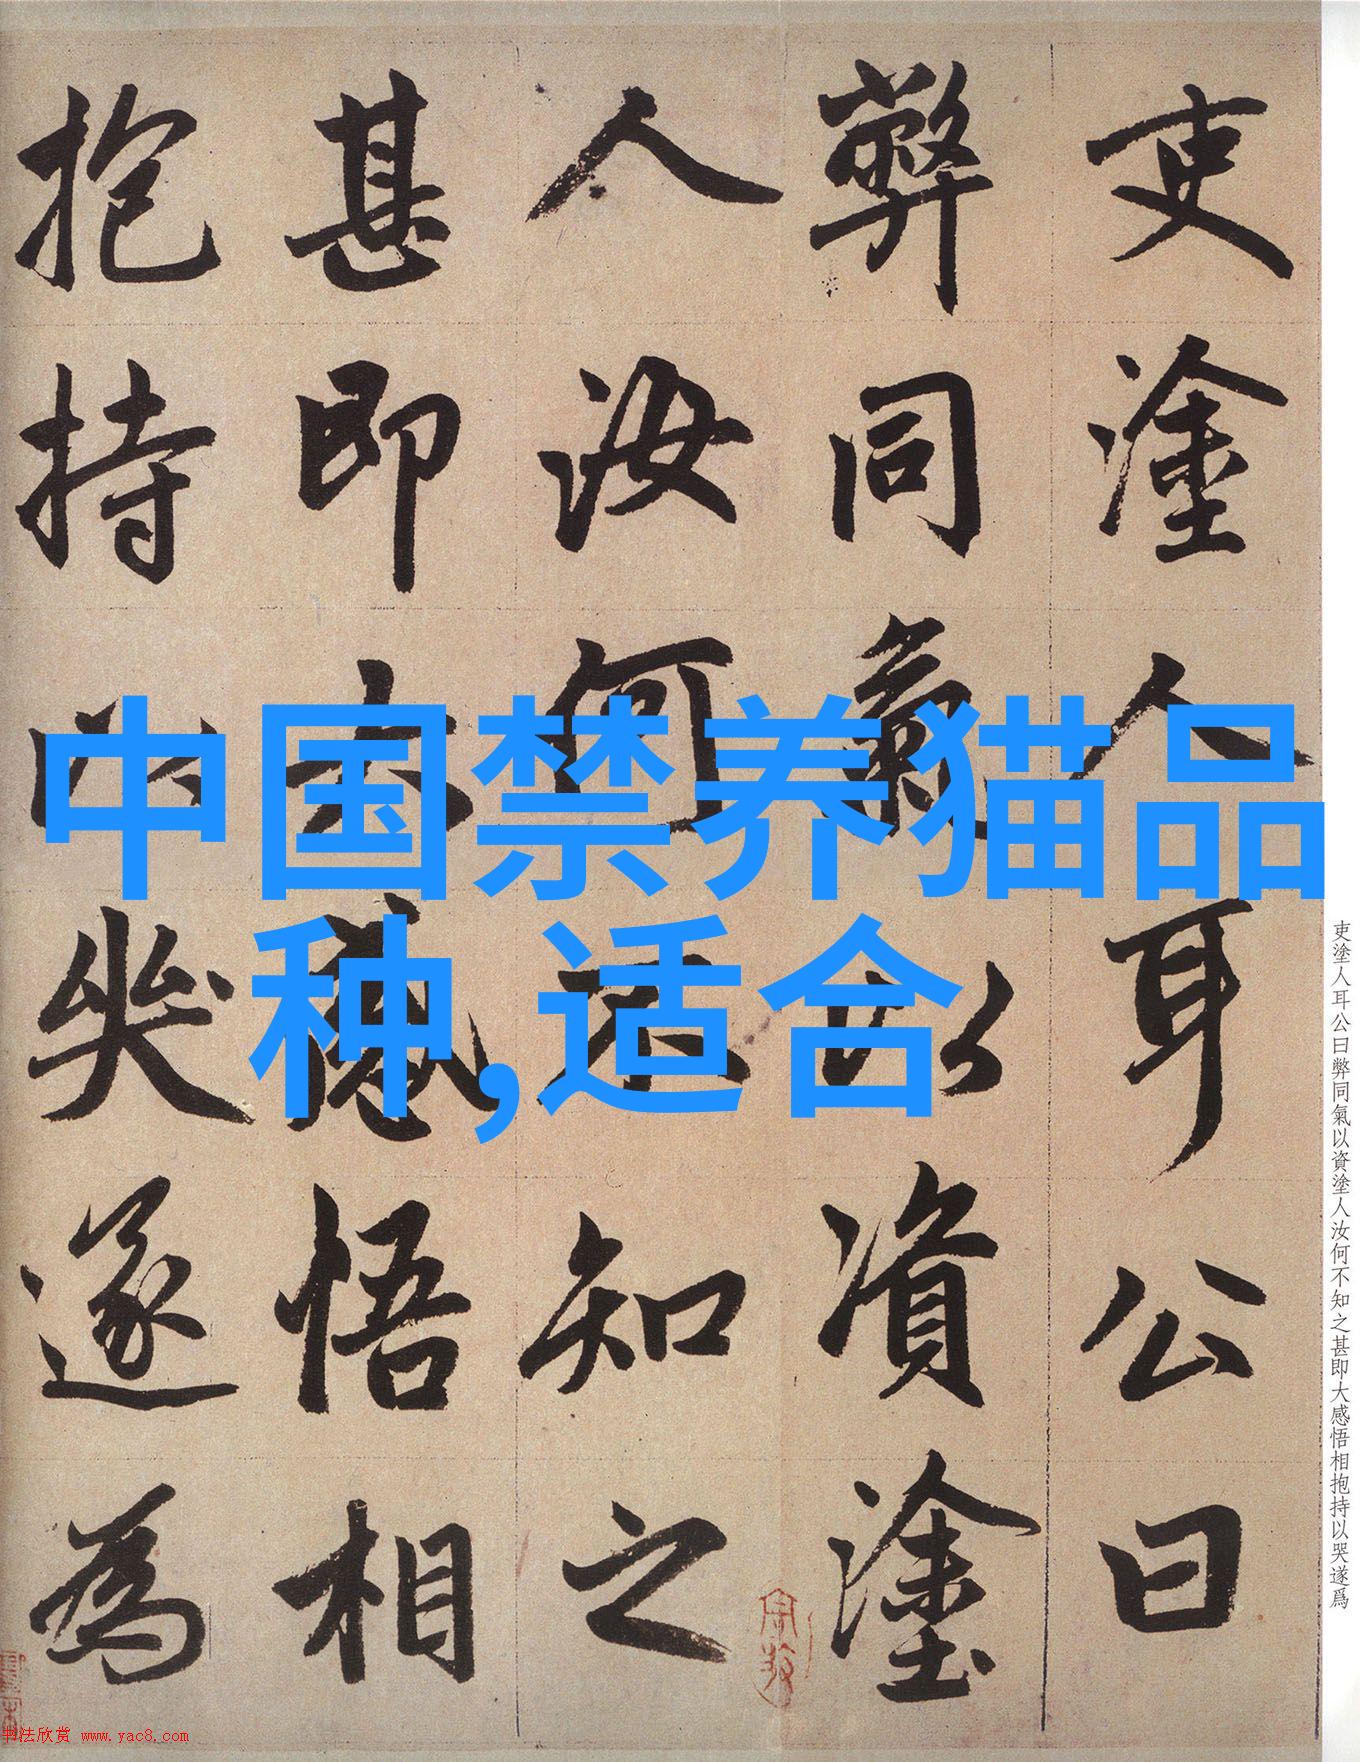 吏塗人耳公曰
弊同氣以資塗
人汝何不知之
甚即大感悟相
抱持以哭遂為
中国禁养猫品
种,适合
吏塗人耳公曰弊同氣以資塗人汝何不知之甚即大感悟相抱持以哭遂爲
书法欣赏 www.yac8.com